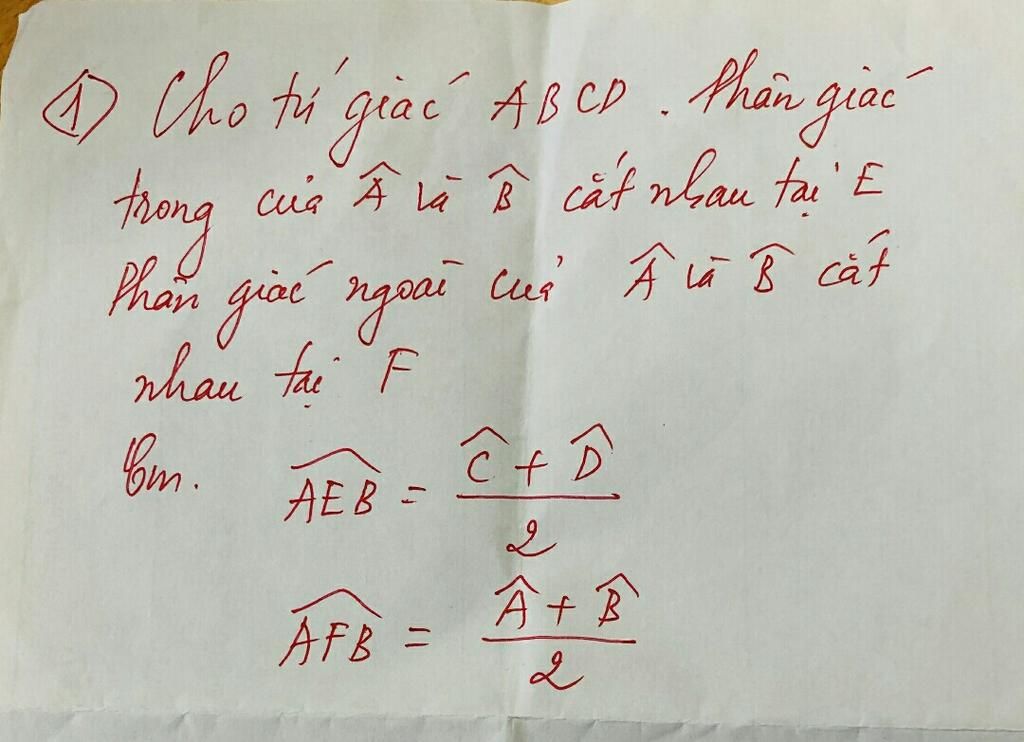 ① Cho tứ giác ABCD. Phân giác
trong của Â và B̂ cắt nhau tại E
Phân giác ngoài của Â và B̂ cắt
nhau tại F
Cm. \widehat{AEB} = \frac{\hat{C} + \hat{D}}{2}
\widehat{AFB} = \frac{\hat{A} + \hat{B}}{2}